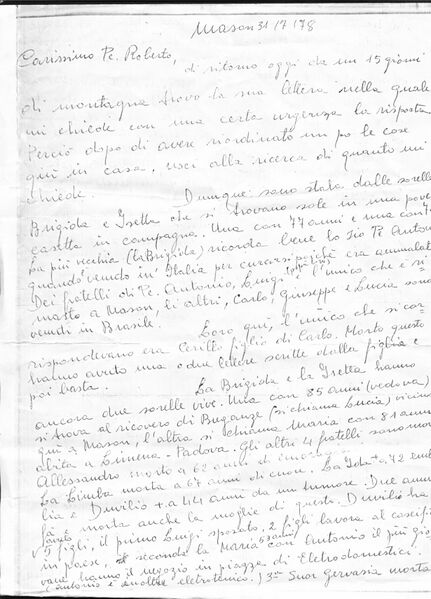 Mason 31/7/78
Carissimo Pe. Roberto,
di ritorno oggi da un 15 giorni
di montagna trovo la sua lettera nella quale
mi chiede con una certa urgenza la risposta
Perciò dopo di avere riordinato un po le cose
quì in casa, uscì alla ricerca di quanto mi
chiede.
Dunque: sono stata dalle sorelle
Brigida e Isetta che si trovano sole in una povera
casetta in campagna. Una con 77 anni e una con
La più vecchia (la Brigida) ricorda bene lo zio Pe Antonio
quando venuto in Italia per curarsi perché era ammalato
Dei fratelli di Pe. Antonio, Luigi è l'unico che è ri-
masto a Mason, li altri, Carlo, Giuseppe e Lucia sono
venuti in Brasile.
Loro quì, l'unico che si cor-
rispondevano era Cirillo figlio di Carlo. Morto questo
hanno avuto una o due lettere scritte dalla figlia e
poi basta.
La Brigida e la Isetta hanno
ancora due sorelle vive. Una con 85 anni (vedova)
si trova al ricovero di Breganze (si chiama Lucia) vicino
quì a Mason, l'altra si chiama Maria con 81 anni
abita a Limena - Padova. Gli altri 4 fratelli sono morti
Allessandro morto a 62 anni di
La Bimba morta a 67 anni di cuore. La 72
lia e Duvilio + a 44 anni da un tumore. Due anni
fà morta anche la moglie di questo. Duvilio ha
figli, il primo Luigi sposato, 2 figli lavora al
in paese, il secondo la Maria con Antonio il più gio-
vane hanno il negozio in piazza di Eletrodomestici.
(Antonio è inoltre eletrotecnico.) 3a Suor Gervasia morta